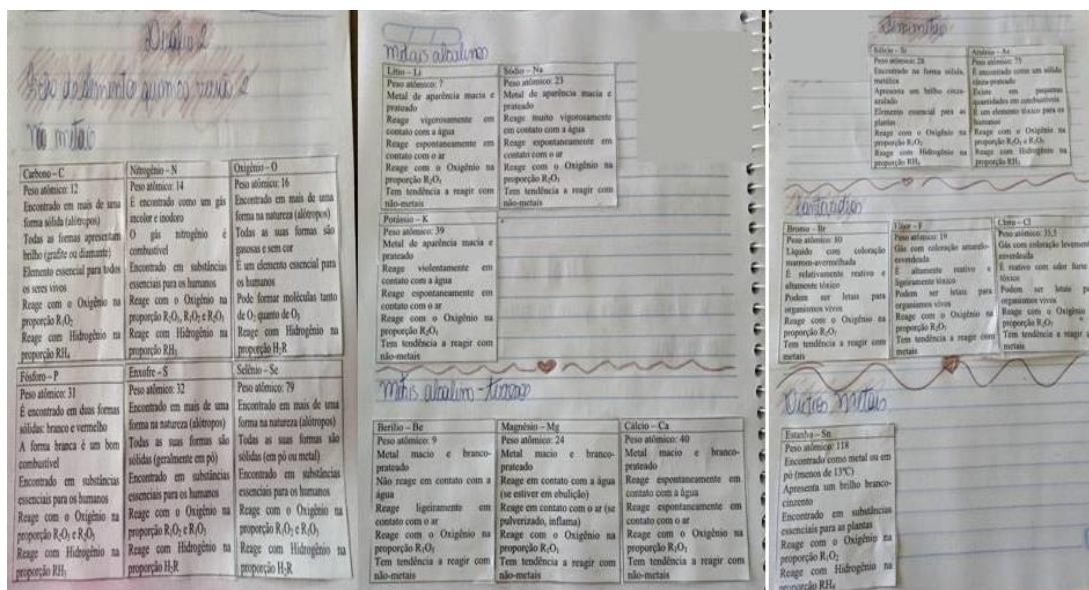 2
Não metais
Carbono – C
Peso atômico: 12
Encontrado em mais de uma
forma sólida (alótropos)
Todas as formas apresentam
brilho (grafite ou diamante)
Elemento essencial para todos
os seres vivos
Reage com o Oxigênio na
proporção R₁O₂
Reage com Hidrogênio na
proporção RH₄
Nitrogênio – N
Peso atômico: 14
É encontrado como um gás
incolor e inodoro
O gás nitrogênio é
combustível
Encontrado em substâncias
essenciais para os humanos
Reage com o Oxigênio na
proporção
Reage com Hidrogênio na
proporção RH₃
Oxigênio – O
Peso atômico: 16
Encontrado em mais de uma
forma na natureza (alótropos)
Todas as suas formas são
gasosas e sem cor
É um elemento essencial para
os humanos
Pode formar moléculas tanto
de O₂ quanto de O₃
Reage com Hidrogênio na
proporção H₂R
Fósforo – P
Peso atômico: 31
É encontrado em duas formas
sólidas: branco e vermelho
A forma branca é um bom
combustível
Encontrado em substâncias
essenciais para os humanos
Reage com o Oxigênio na
proporção R₂O₃ e R₂O₅
Reage com Hidrogênio na
proporção RH₃
Enxofre – S
Peso atômico: 32
Encontrado em mais de uma
forma na natureza (alótropos)
Todas as suas formas são
sólidas (geralmente em pó)
Encontrado em substâncias
essenciais para os humanos
Reage com o Oxigênio na
proporção R₁O₂ e R₁O₃
Reage com Hidrogênio na
proporção H₂R
Selênio – Se
Peso atômico: 79
Encontrado em mais de uma
forma na natureza (alótropos)
Todas as suas formas são
sólidas (em pó ou metal)
Encontrado em substâncias
essenciais para os humanos
Reage com o Oxigênio na
proporção R₁O₂ e R₁O₃
Reage com Hidrogênio na
proporção H₂R
Metais alcalinos
Lítio – Li
Peso atômico: 7
Metal de aparência macia e
prateado
Reage vigorosamente em
contato com a água
Reage espontaneamente em
contato com o ar
Reage com o Oxigênio na
proporção R₂O₁
Tem tendência a reagir com
não-metais
Sódio – Na
Peso atômico: 23
Metal de aparência macia e
prateado
Reage muito vigorosamente
em contato com a água
Reage espontaneamente em
contato com o ar
Reage com o Oxigênio na
proporção R₂O₁
Tem tendência a reagir com
não-metais
Potássio – K
Peso atômico: 39
Metal de aparência macia e
prateado
Reage violentamente em
contato com a água
Reage espontaneamente em
contato com o ar
Reage com o Oxigênio na
proporção R₂O₁
Tem tendência a reagir com
não-metais
Metais alcalino-terroso
Berílio – Be
Peso atômico: 9
Metal macio e branco-
prateado
Não reage em contato com a
água
Reage ligeiramente em
contato com o ar
Reage com o Oxigênio na
proporção R₁O₁
Tem tendência a reagir com
não-metais
Magnésio – Mg
Peso atômico: 24
Metal macio e branco-
prateado
Reage em contato com a água
(se estiver em ebulição)
Reage em contato com o ar (se
pulverizado, inflama)
Reage com o Oxigênio na
proporção R₁O₁
Tem tendência a reagir com
não-metais
Cálcio – Ca
Peso atômico: 40
Metal macio e branco-
prateado
Reage espontaneamente em
contato com a água
Reage espontaneamente em
contato com o ar
Reage com o Oxigênio na
proporção R₁O₁
Tem tendência a reagir com
não-metais
Semimetais
Silício – Si
Peso atômico: 28
Encontrado na forma sólida,
metálica
Apresenta um brilho cinza-
azulado
Elemento essencial para as
plantas
Reage com o Oxigênio na
proporção R₁O₂
Reage com Hidrogênio na
proporção RH₄
Arsênio – As
Peso atômico: 75
É encontrado como um sólido
cinza-prateado
Existe em pequenas
quantidades em combustíveis
É um elemento tóxico para os
humanos
Reage com o Oxigênio na
proporção R₂O₃ e R₂O₅
Reage com Hidrogênio na
proporção RH₃
Bromo – Br
Peso atômico: 80
Líquido com coloração
marrom-avermelhada
É relativamente reativo e
altamente tóxico
Podem ser letais para
organismos vivos
Reage com o Oxigênio na
proporção R₂O₇
Tem tendência a reagir com
metais
Flúor – F
Peso atômico: 19
Gás com coloração amarelo-
esverdeada
É altamente reativo e
ligeiramente tóxico
Podem ser letais para
organismos vivos
Reage com o Oxigênio na
proporção R₂O₇
Tem tendência a reagir com
metais
Cloro – Cl
Peso atômico: 35,5
Gás com coloração levemente
esverdeada
É reativo com odor forte
tóxico
Podem ser letais para
organismos vivos
Reage com o Oxigênio na
proporção R₂O₇
Tem tendência a reagir
metais
Outros Metais
Estanho – Sn
Peso atômico: 118
Encontrado como metal ou em
pó (menos de 13ºC)
Apresenta um brilho branco-
cinzento
Encontrado em substâncias
essenciais para as plantas
Reage com o Oxigênio na
proporção R₁O₂
Reage com Hidrogênio na
proporção RH₄